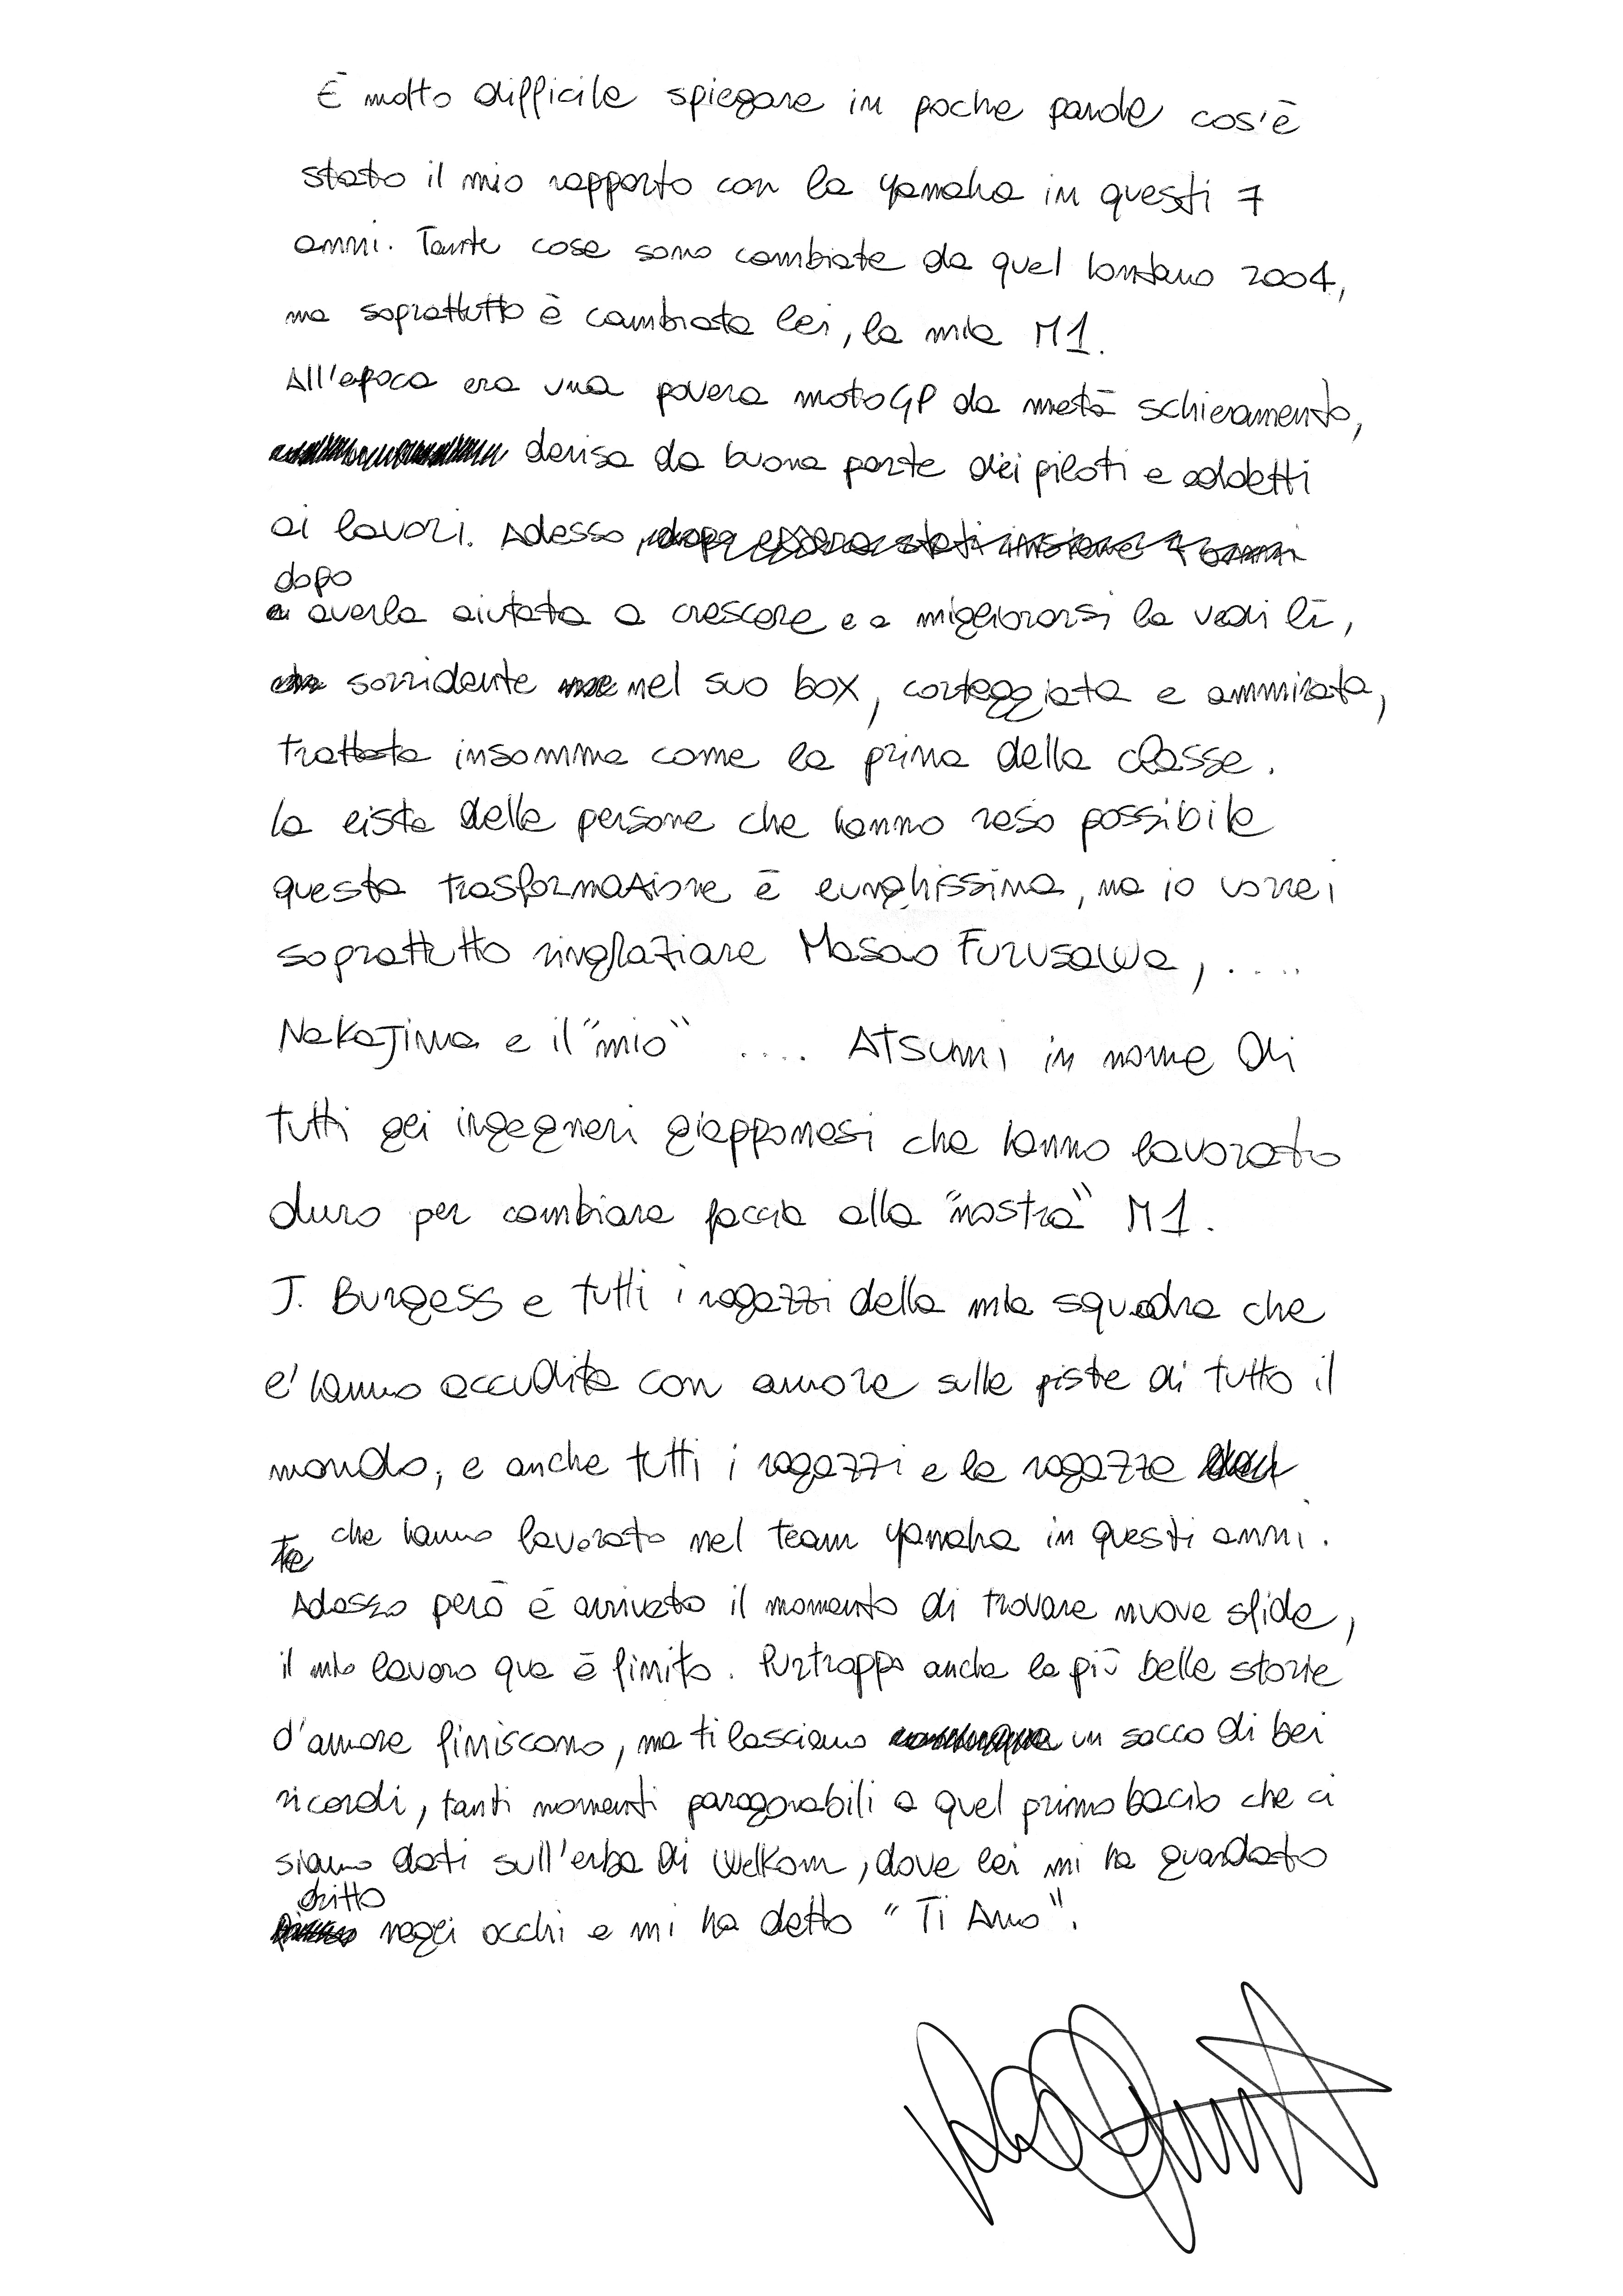 È molto difficile spiegare in poche parole cos'è
stato il mio rapporto con la Yamaha in questi 7
anni. Tante cose sono cambiate da quel lontano 2004,
ma soprattutto è cambiata lei, la mia M1.
All'epoca era una povera motoGP da metà schieramento,
derisa da buona parte dei piloti e addetti
ai lavori. Adesso, dopo essere stati insieme 7 anni
dopo
averla aiutata a crescere e a migliorarsi la vedi lì,
sorridente nel suo box, corteggiata e ammirata,
trattata insomma come la prima della classe.
la lista delle persone che hanno reso possibile
questa trasformazione è lunghissima, ma io vorrei
soprattutto ringraziare Masao Furusawa, .....
Nakajima e il "mio" .... Atsumi in nome di
tutti gli ingegneri giapponesi che hanno lavorato
duro per cambiare faccia alla "nostra" M1.
J. Burgess e tutti i ragazzi della mia squadra che
l'hanno accudita con amore sulle piste di tutto il
mondo, e anche tutti i ragazzi e le ragazze
che hanno lavorato nel team Yamaha in questi anni.
Adesso però è arrivato il momento di trovare nuove sfide,
il mio lavoro qua è finito. Purtroppo anche le più belle storie
d'amore finiscono, ma ti lasciano un sacco di bei
ricordi, tanti momenti paragonabili a quel primo bacio che ci
siamo dati sull'erba di Welkom, dove lei mi ha guardato
dritto
negli occhi e mi ha detto "Ti Amo".